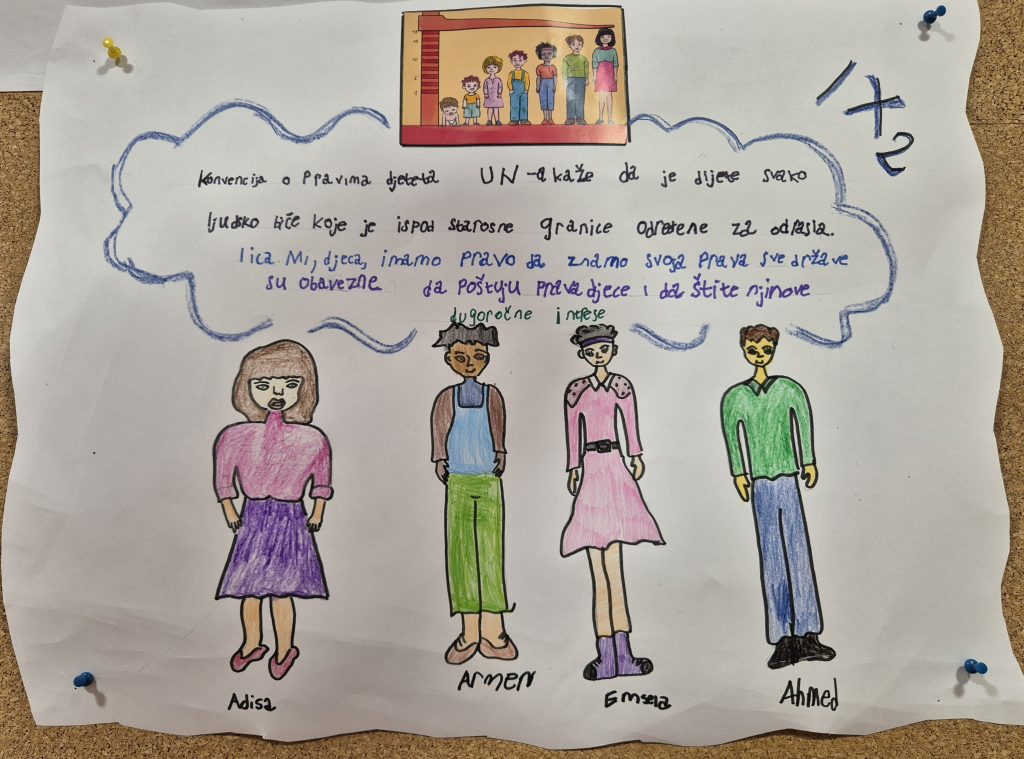 1 X 2
Konvencija o Pravima djeteta UN-a kaže da je dijete svako
ljudsko biće koje je ispod starosne granice odretene za odrasla.
lica. Mi, djeca, imamo Pravo da znamo svoja Prava sve države
su obavezne da Poštuju Prava djece i da štite njinove
dugoročne intrese
Adisa
ArmEN
Emsela
Ahmed